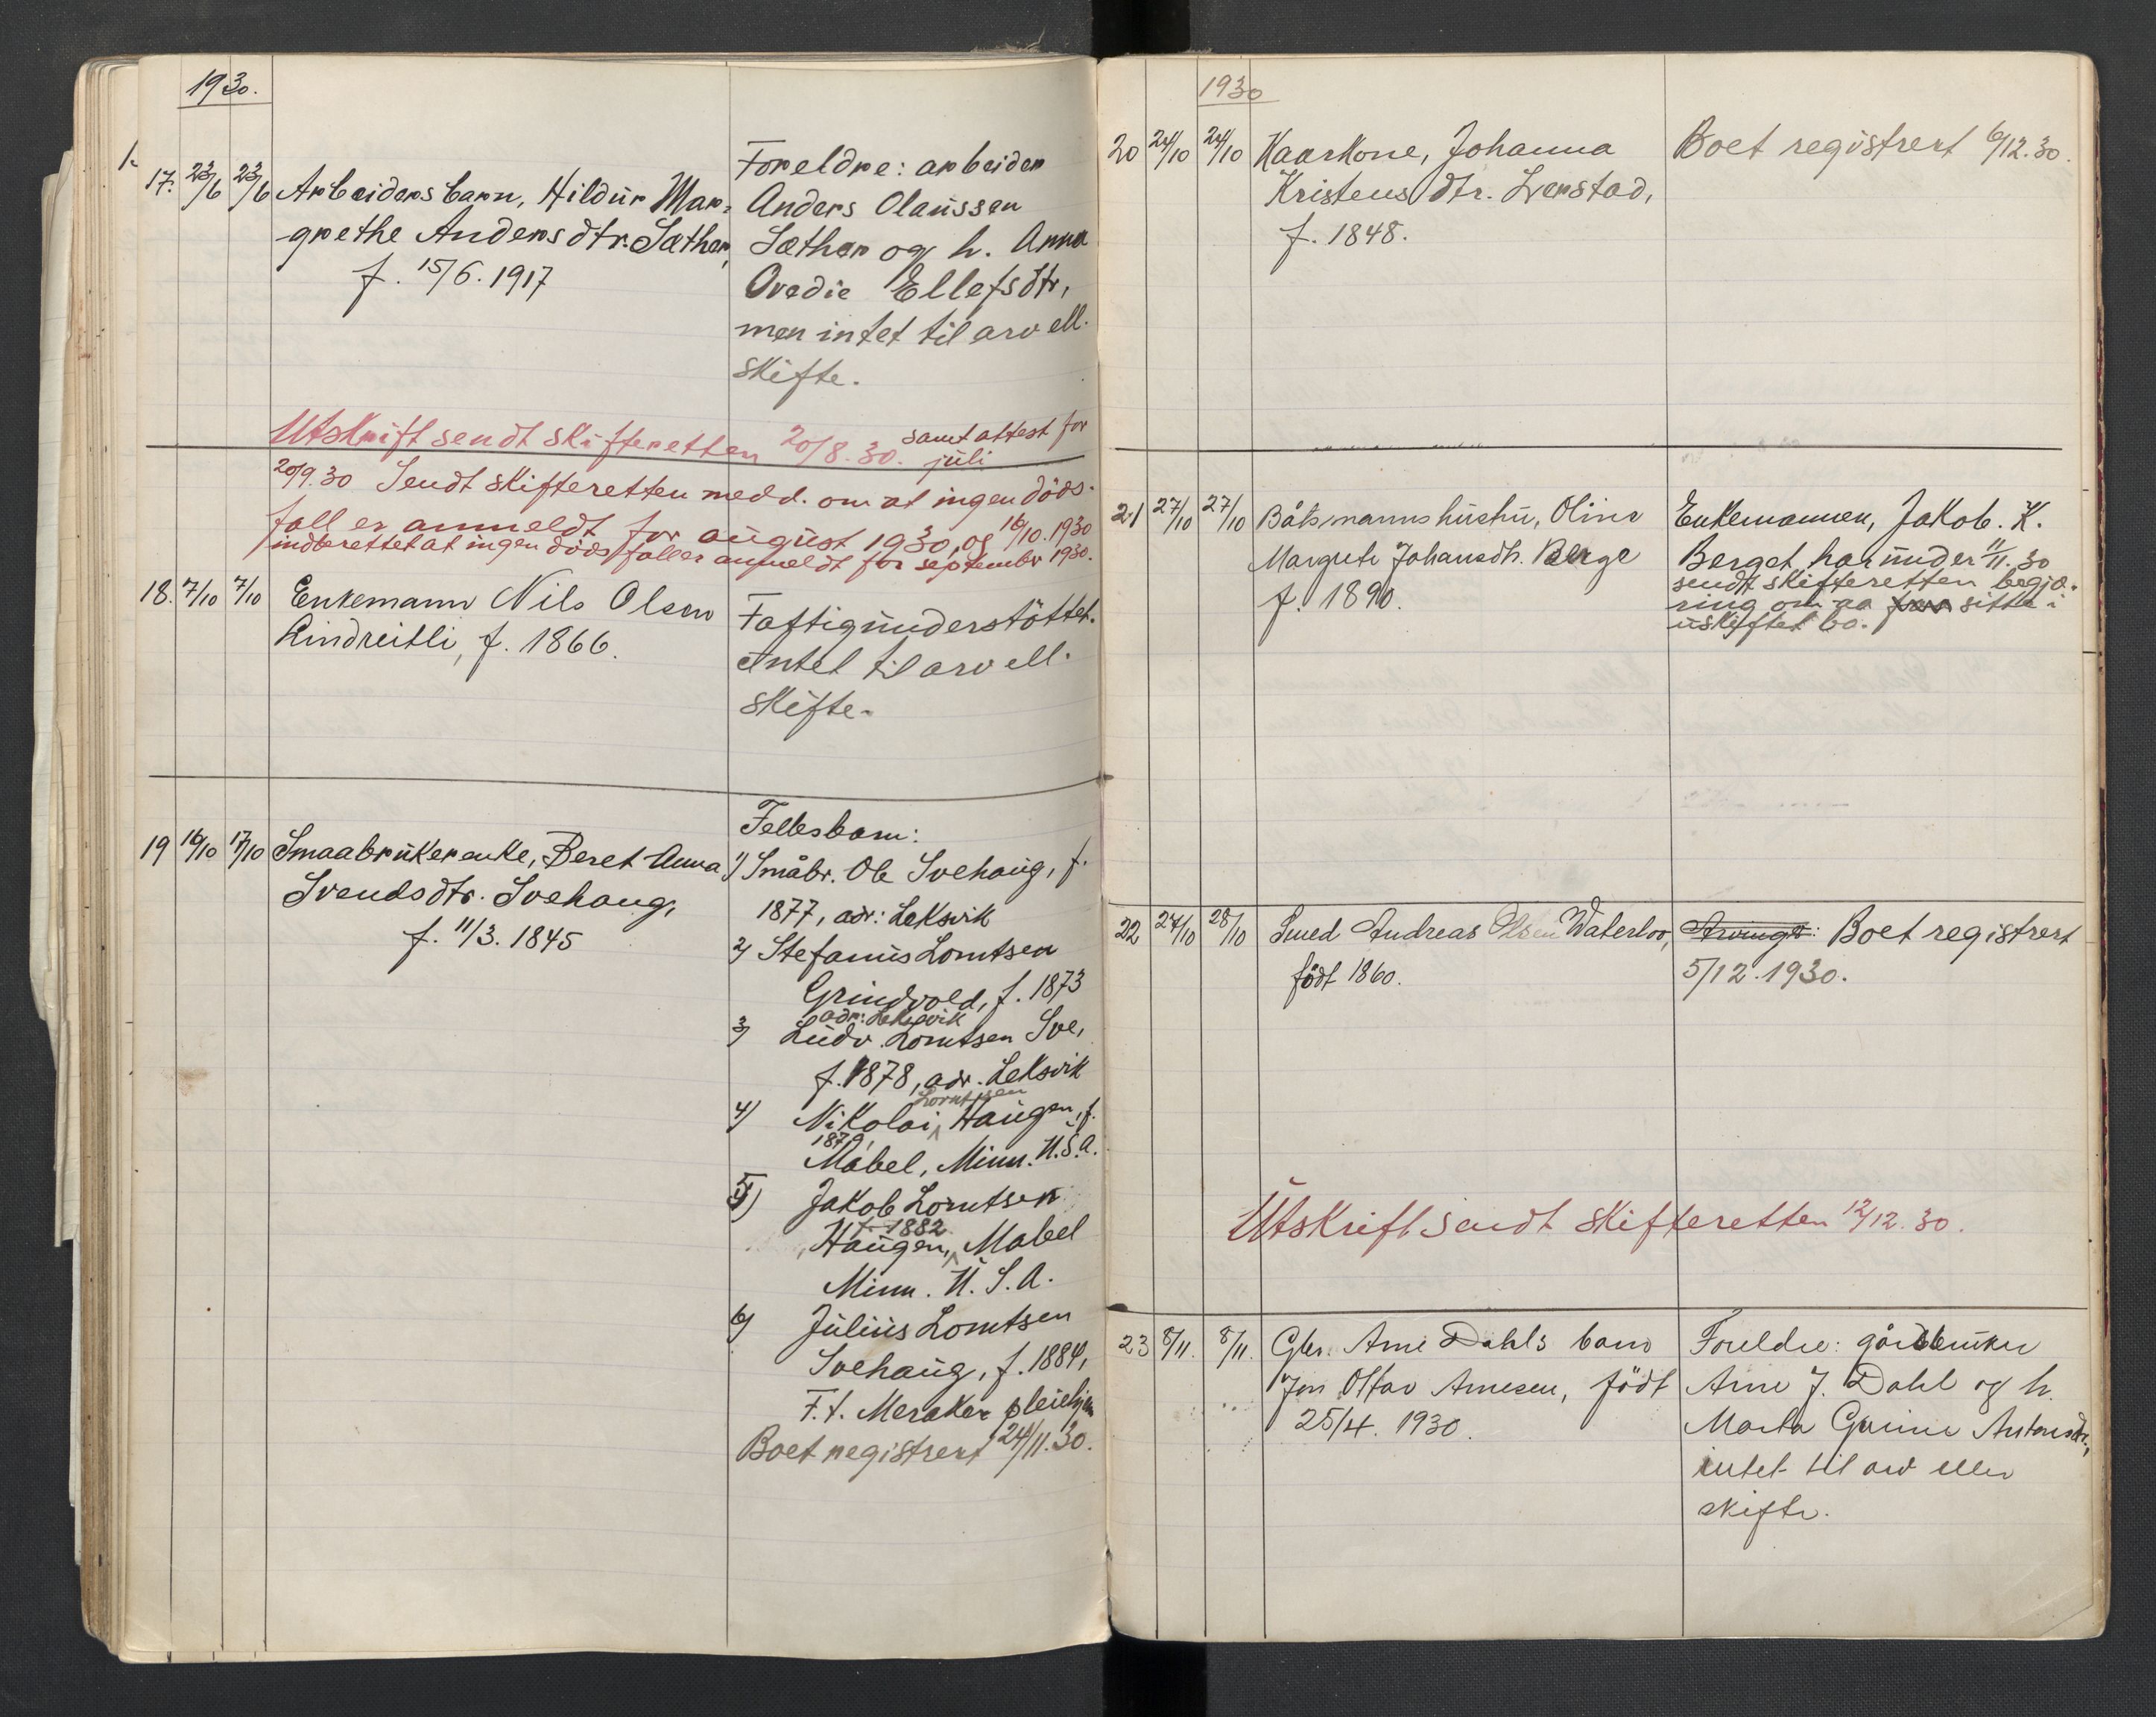 1930.
1.
17. 23/6 23/6 Arbeiders barn, Hildur Mar-
grethe Andersdtr. Sæther,
f. 15/6. 1917
Foreldre: arbeider
Anders Olaussen
Sæther og h. Anna
Ovedie Ellefsdtr,
men intet til arv ell.
skifte.
Utskrift sendt skifteretten 20/8. 30. samt attest for
juli
20/9. 30 Sendt skifteretten medd. om at ingen døds-
fall er anmeldt for august 1930, og 16/10. 1930
indberettet at ingen dødsfall er anmeldt for september 1930.
18. 7/10 7/10 Enkemann Nils Olsen
Lindseitli, f. 1866.
Fattigunderstøttet.
Intet til arv ell.
skifte.
19 16/10 17/10 Smaabrukerenke, Beret Anna
Svendsdtr. Svehaug,
f. 11/3. 1845
Fellesbarn:
1) Småbr. Ole Svehaug, f.
1877, adr: Leksvik
2) Stefanus Lorntsen
Grindvold, f. 1873
adr: Leksvik
3) Ludv. Lorntsen Sve,
f. 1878, adr. Leksvik
4) Nikolai Lorntsen Haugen, f.
1879, Mabel, Minn. U.S.A.
5) Jakob Lorntsen
Haugen, f. 1882 Mabel
Minn. U.S.A.
6) Julius Lorntsen
Svehaug, f. 1884,
F.t. Meraker pleiehjem
Boet registrert 24/11. 30.
1930
20 24/10 24/10 Kaarkone, Johanna
Kristensdtr. Lerstad,
f. 1848.
Boet registrert 6/12. 30.
21 27/10 27/10 Båtsmannshustru, Oline
Margrete Johansdtr. Berge
f. 1890.
Enkemannen, Jakob. K.
Berget har under 11/11. 30
sendt skifteretten begjæ-
ring om aa faa sitte i
uskiftet bo.
22 27/10 28/10 Smed Andreas Olsen Waterloo,
født 1860.
Arvinger: Boet registrert
5/12. 1930.
Utskrift sendt skifteretten 12/12. 30.
23 8/11. 8/11. Gbr. Arne Dahls barn
Jon Ottar Arnesen, født
25/4. 1930.
Foreldre: gårdbruker
Arne J. Dahl og h.
Marta Gurine Antonsdtr.,
intet til arv eller
skifte.